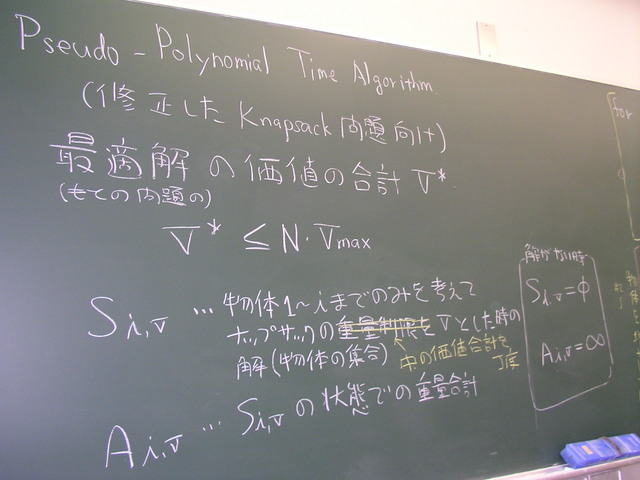 Pseudo - Polynomial Time Algorithm
(修正した Knapsack 問題向け)
最適解の価値の合計 V*
(もとの問題の)
V* ≤ N・Vmax
Si,v … 物体1~iまでのみを考えて
ナップサックの重量制限をVとした時の
解(物体の集合)
中の価値合計を
丁度
Ai,v … Si,v の状態での重量合計
解がない時
Si,v = φ
Ai,v = ∞
for